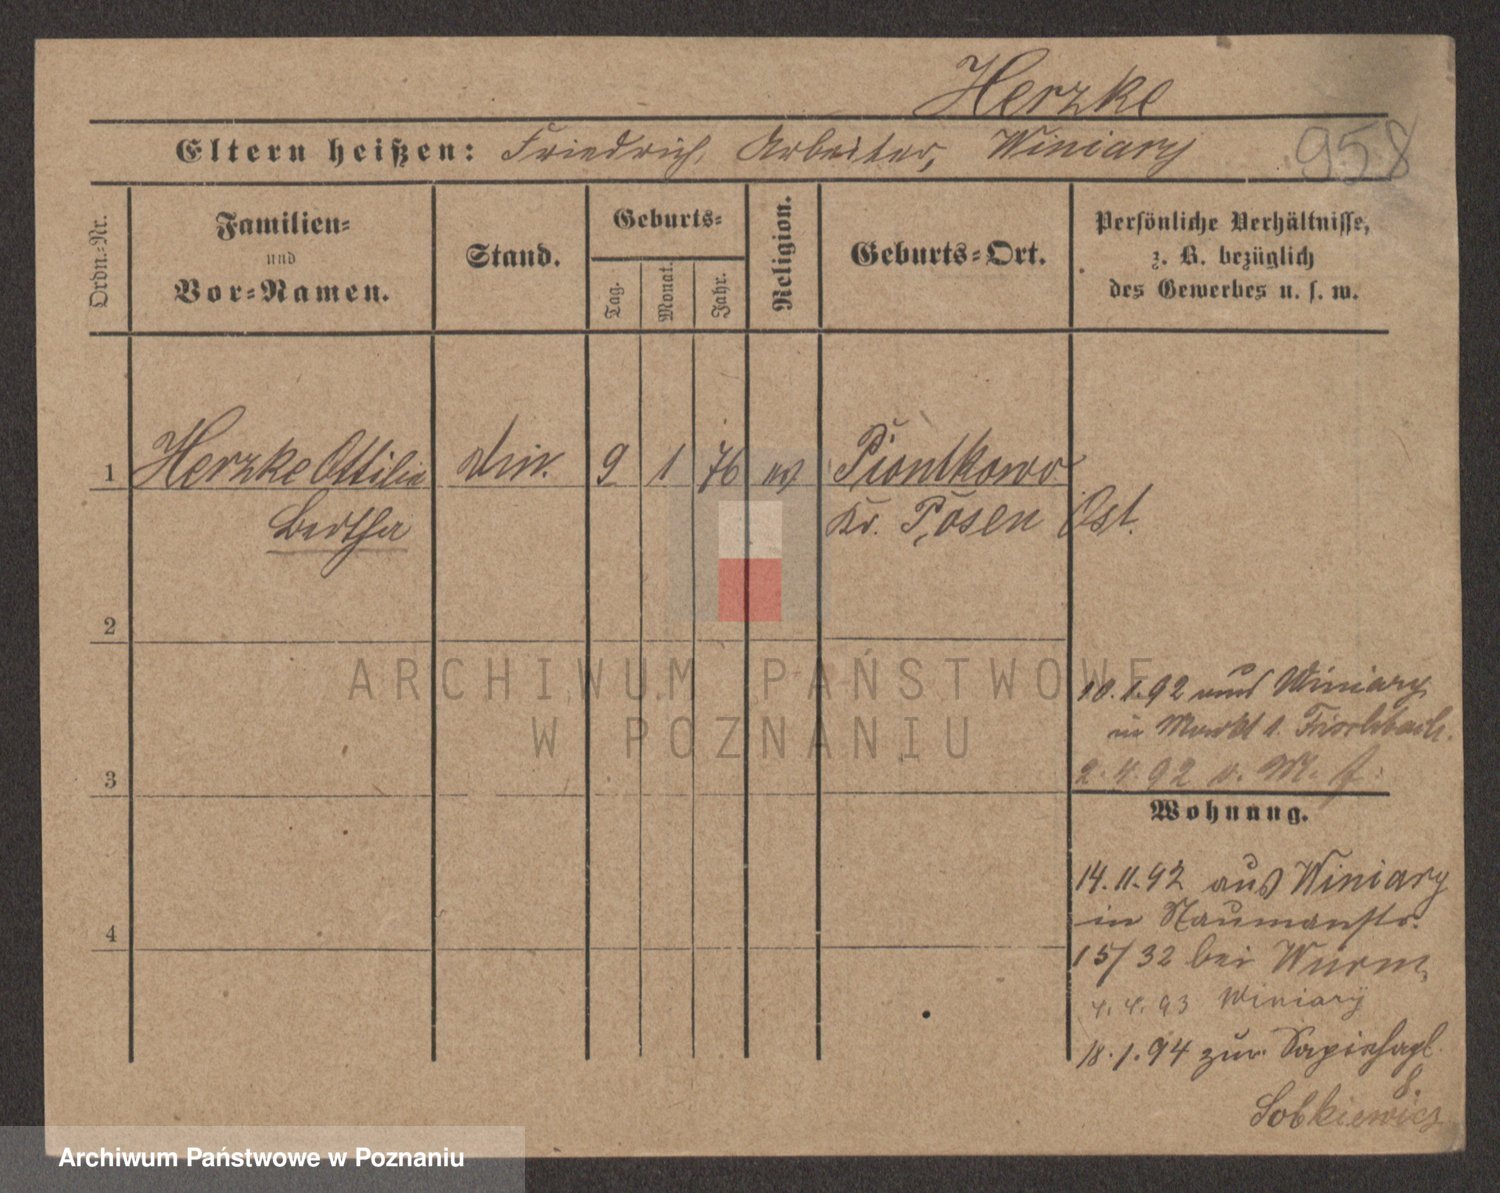 Herzke
958
Eltern heißen: Friedrich, Arbeiter, Winiary
Ordn.-Nr.
Familien- und Vor-Namen.
Stand.
Geburts-
Tag.
Monat.
Jahr.
Religion.
Geburts-Ort.
Persönliche Verhältnisse,
z. B. bezüglich
des Gewerbes u. s. w.
1 Herzke Ottilie 9 1 76 ev Piontkowo
Bertha Kr. Posen Ost.
2
3
4
10.1.92 aus Winiary
in Markt
2.4.92
Wohnung.
14.11.92 aus Winiary
in Naumannstr.
15/32 bei Wurm,
4.4.93 Winiary
18.1.94 zur Sapiehapl.
8.
Sobkiewicz
ARCHIWUM PAŃSTWOWE
W POZNANIU
Archiwum Państwowe w Poznaniu